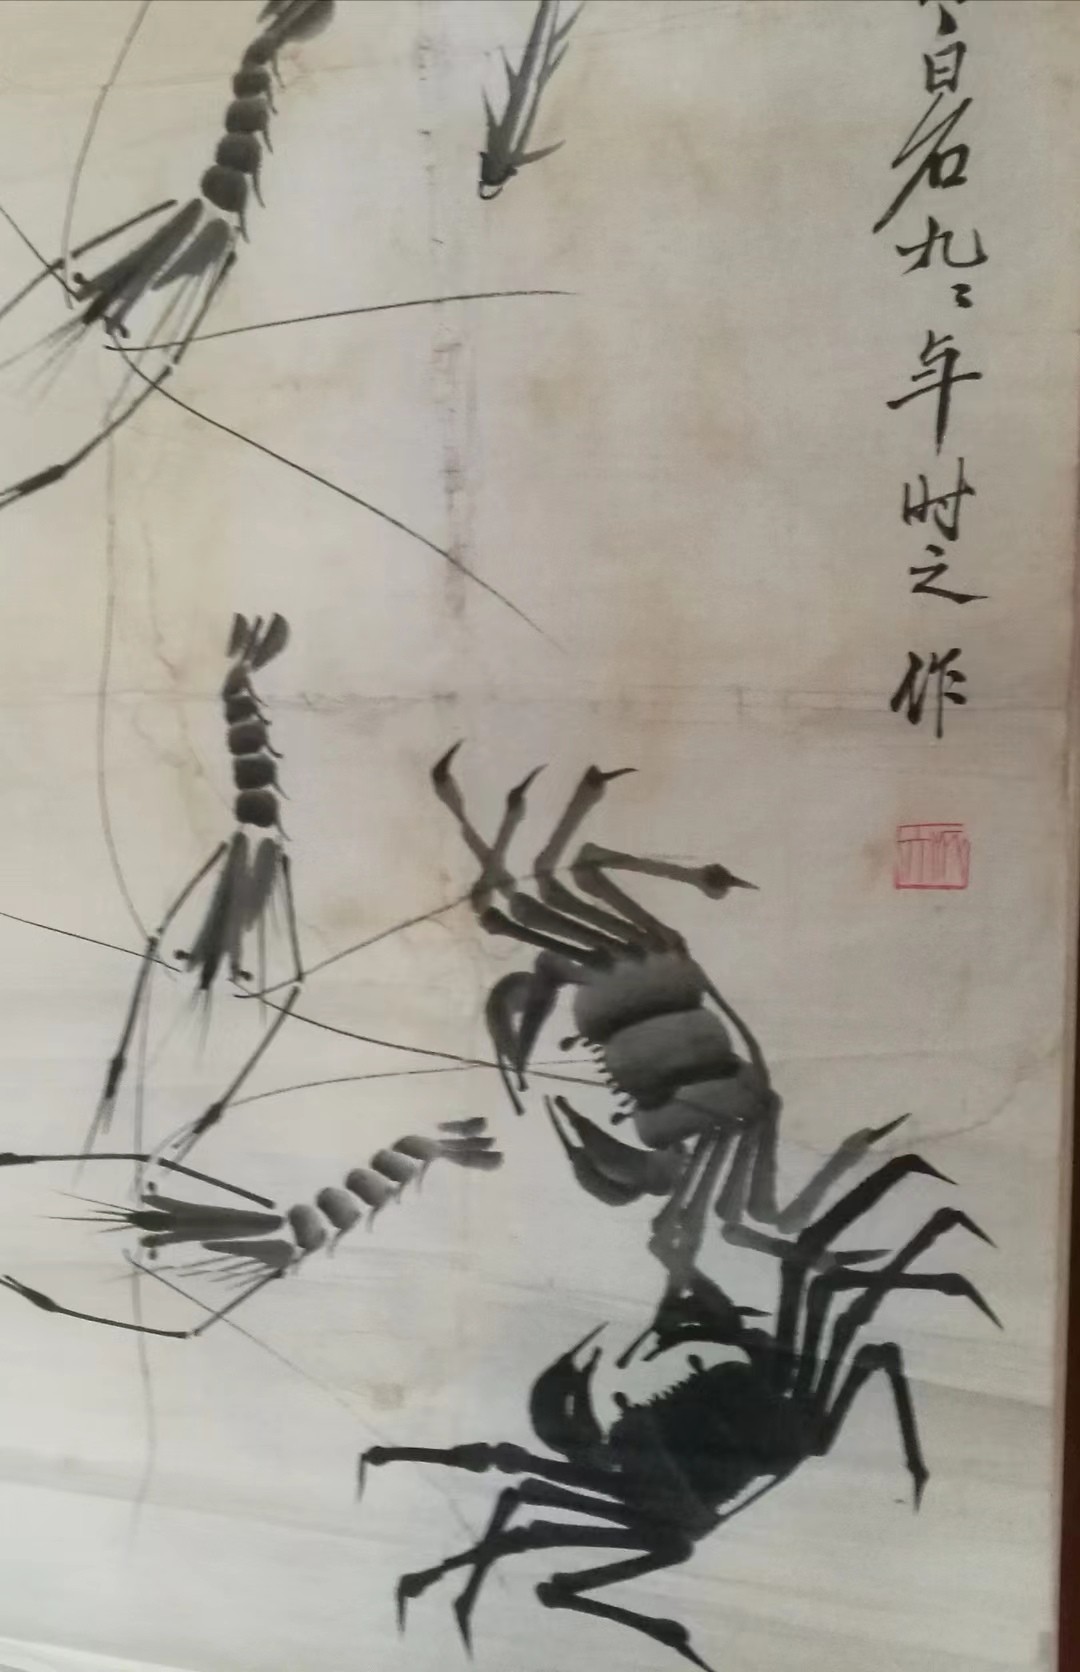 白石九二年时之作